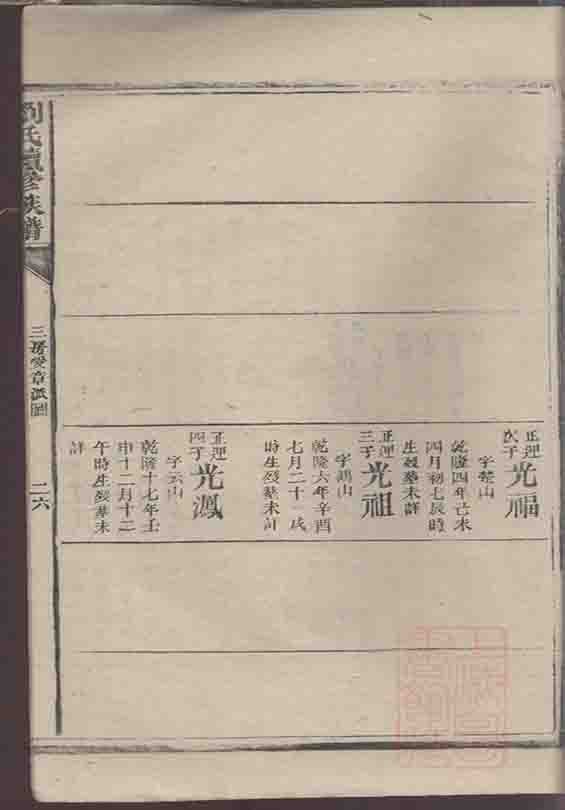 正理
次子
光福
字楚山
乾隆四年己未
四月初七辰時
生歿葬未詳
正理
三子
光祖
乾隆六年辛酉
七月二十一戌
時生歿葬未詳
正理
四子
光鳳
字云山
乾隆十七年壬
申十二月十二
午時生歿葬未
詳
劉氏續修族譜
三房愛章派圖
二六